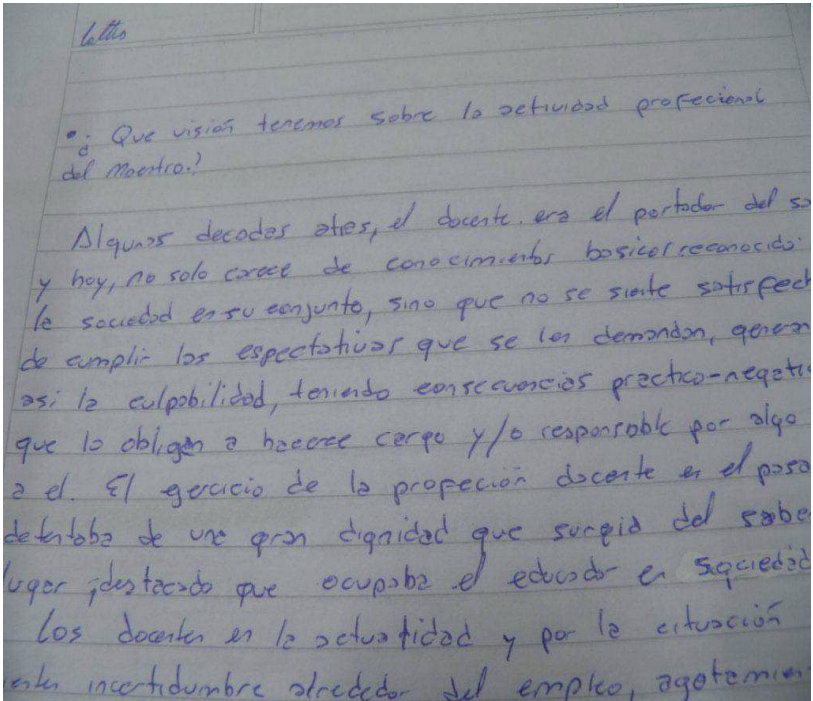 • ¿ Que visión tenemos sobre la actividad profecional
del Maestro.?
Algunas decadas atras, el docente era el portador del sa
y hoy, no solo carece de conocimientos basicos reconocido
la sociedad en su conjunto, sino que no se siente satisfech
de cumplir las espectativas que se les demandan, generan
asi la culpabilidad, teniendo consecuencias practico-negativ
que lo obligan a hacerce cargo y/o responsable por algo
a el. El gercicio de la profeción docente en el pasa
detentaba de una gran dignidad que surgia del sabe
lugar destacado que ocupaba el educador en sociedad
Los docentes en la actualidad y por la cituación
incertidumbre alrededor del empleo, agotamien